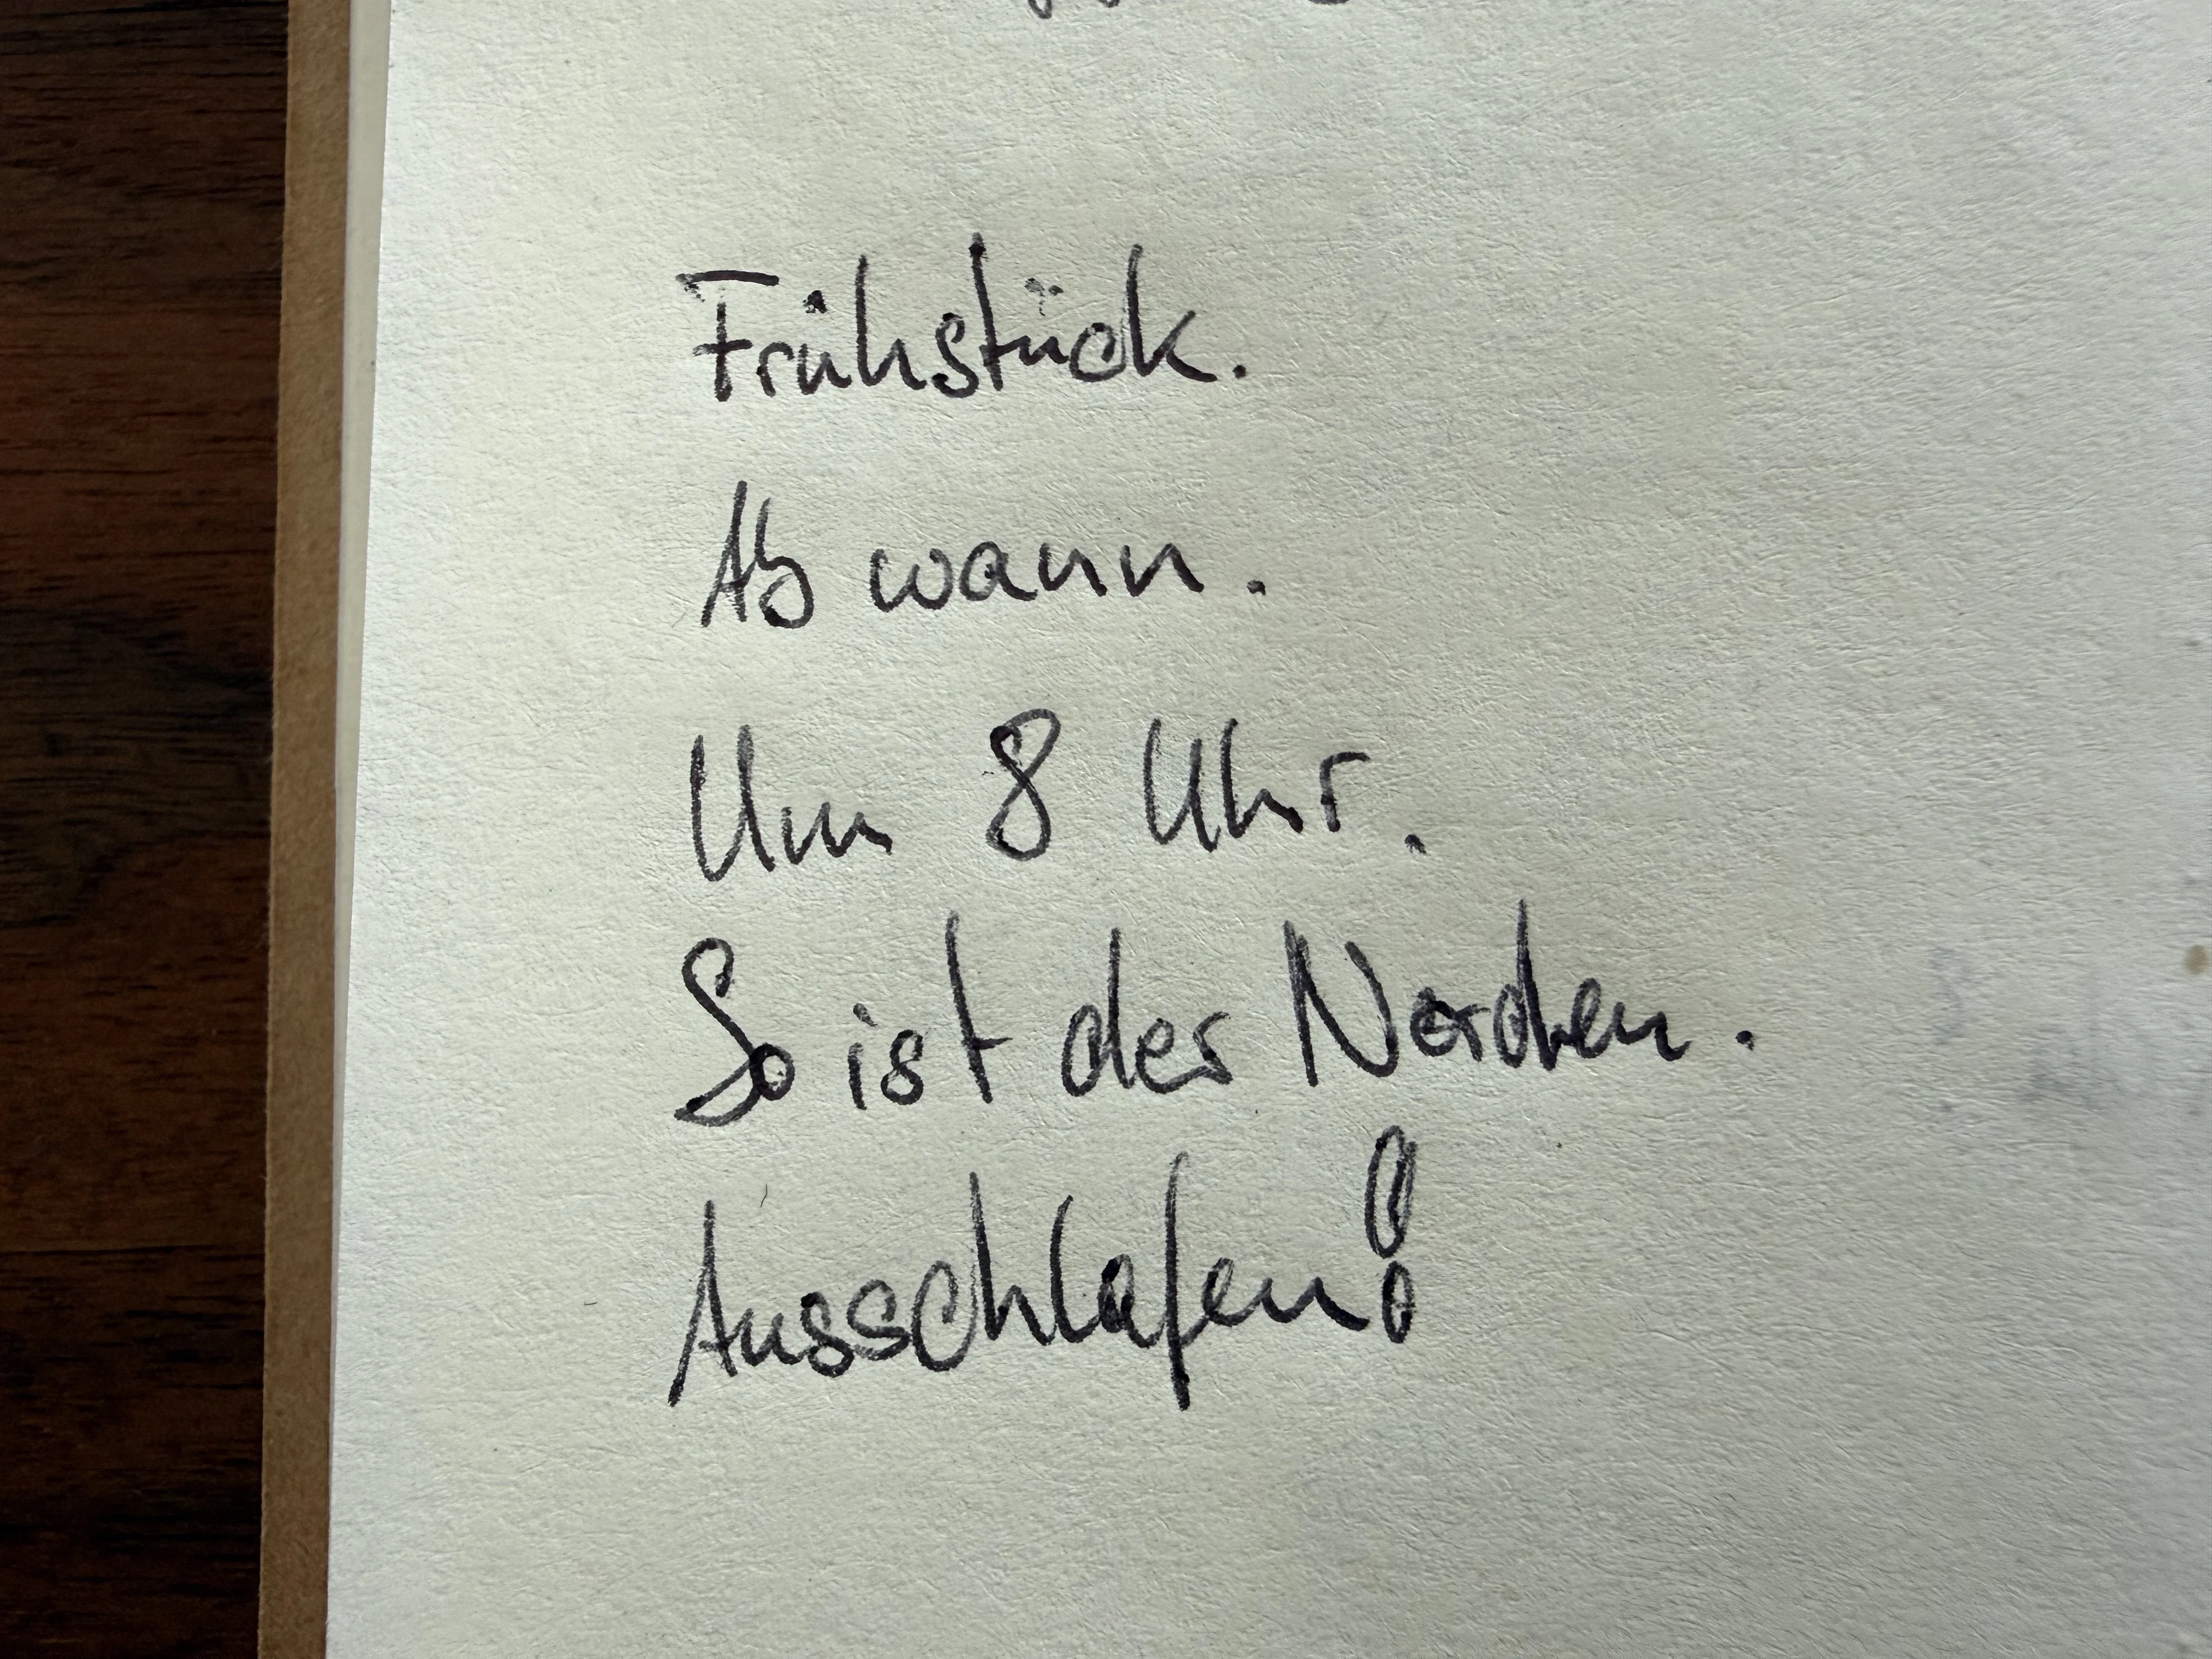 Frühstück.
Ab wann.
Um 8 Uhr.
So ist der Norden.
Ausschlafen!